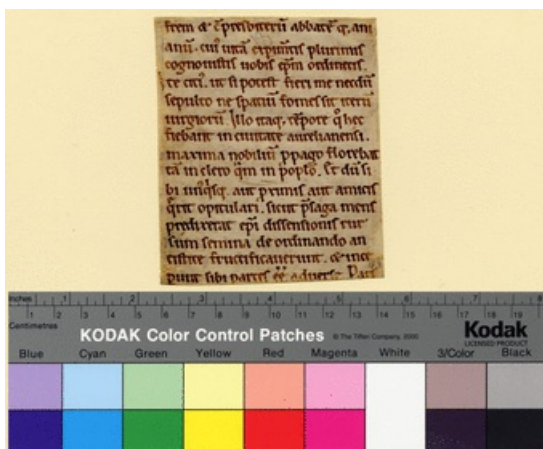 frem & c̄presbiterū abbatē q; ani
anū. cuı᷒ uitā exp̄mtis plurimis
cognouistis uobis ep̄m ordinetis.
te citı᷒. ut si potest fieri me necdū
sepulto ne spatiū fomes sit iterū
iurgiorū. Illo itaq; tēpore q̊ hec
fiebant in ciuitate aurelianensi.
maxima nobiliū ppago florebat
tā in clero q̄m in pop̄lo. St dū si
bi unq̊sq; aut p̄ximis aut amicis
q̄rit opitulari. sicut p̄saga mens
predixerat ep̄i dissensionis rur
sum semina de ordinando an
tistite fructificauerunt. & ince
punt sibi partes eē aduersę.
Inches 1 2 3 4 5 6 7
Centimetres 1 2 3 4 5 6 7 8 9 10 11 12 13 14 15 16 17 18 19
KODAK Color Control Patches © The Tiffen Company, 2000 Kodak
LICENSED PRODUCT
Blue Cyan Green Yellow Red Magenta White 3/Color Black